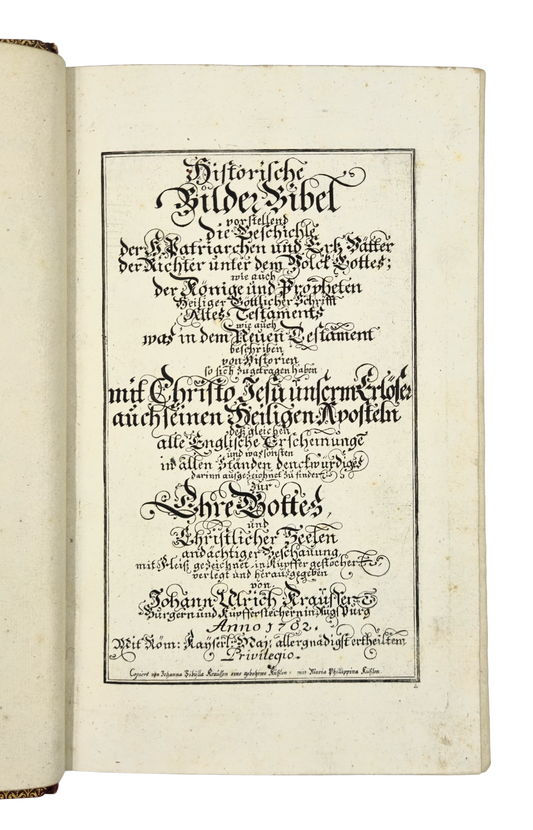 Historische
Bilder Bibel
vorstellend
die Geschichte
der H. Patriarchen und Ertz Vätter
der Richter unter dem Volck Gottes;
wie auch
der Könige und Propheten
Heiliger Göttlicher Schrifft
Altes Testaments
wie auch
was in dem Neuen Testament
beschriben
von Historien
so sich zugetragen haben
mit Christo Jesu unserm Erlöser
auch seinen Heiligen Aposteln
deßgleichen
alle Englische Erscheinunge
und was sonsten
in allen Ständen denckwürdiges
darinn aufgezeichnet zu finden
zur
Ehre Gottes,
und
Christlicher Seelen
andächtiger Beschauung
mit Fleiß gezeichnet, in Kupffer gestochen
verlegt und herausgegeben
von
Johann Ulrich Kraussen
Burgern und Kupfferstechern in Augspurg
Anno 1702.
Mit Röm: Kayserl: Maj: allergnädigst ertheiltem
Privilegio.
Copiert von Johanna Sibilla Kraüsen eine gebohrne Küslen: mit Maria Phillippina Küslen